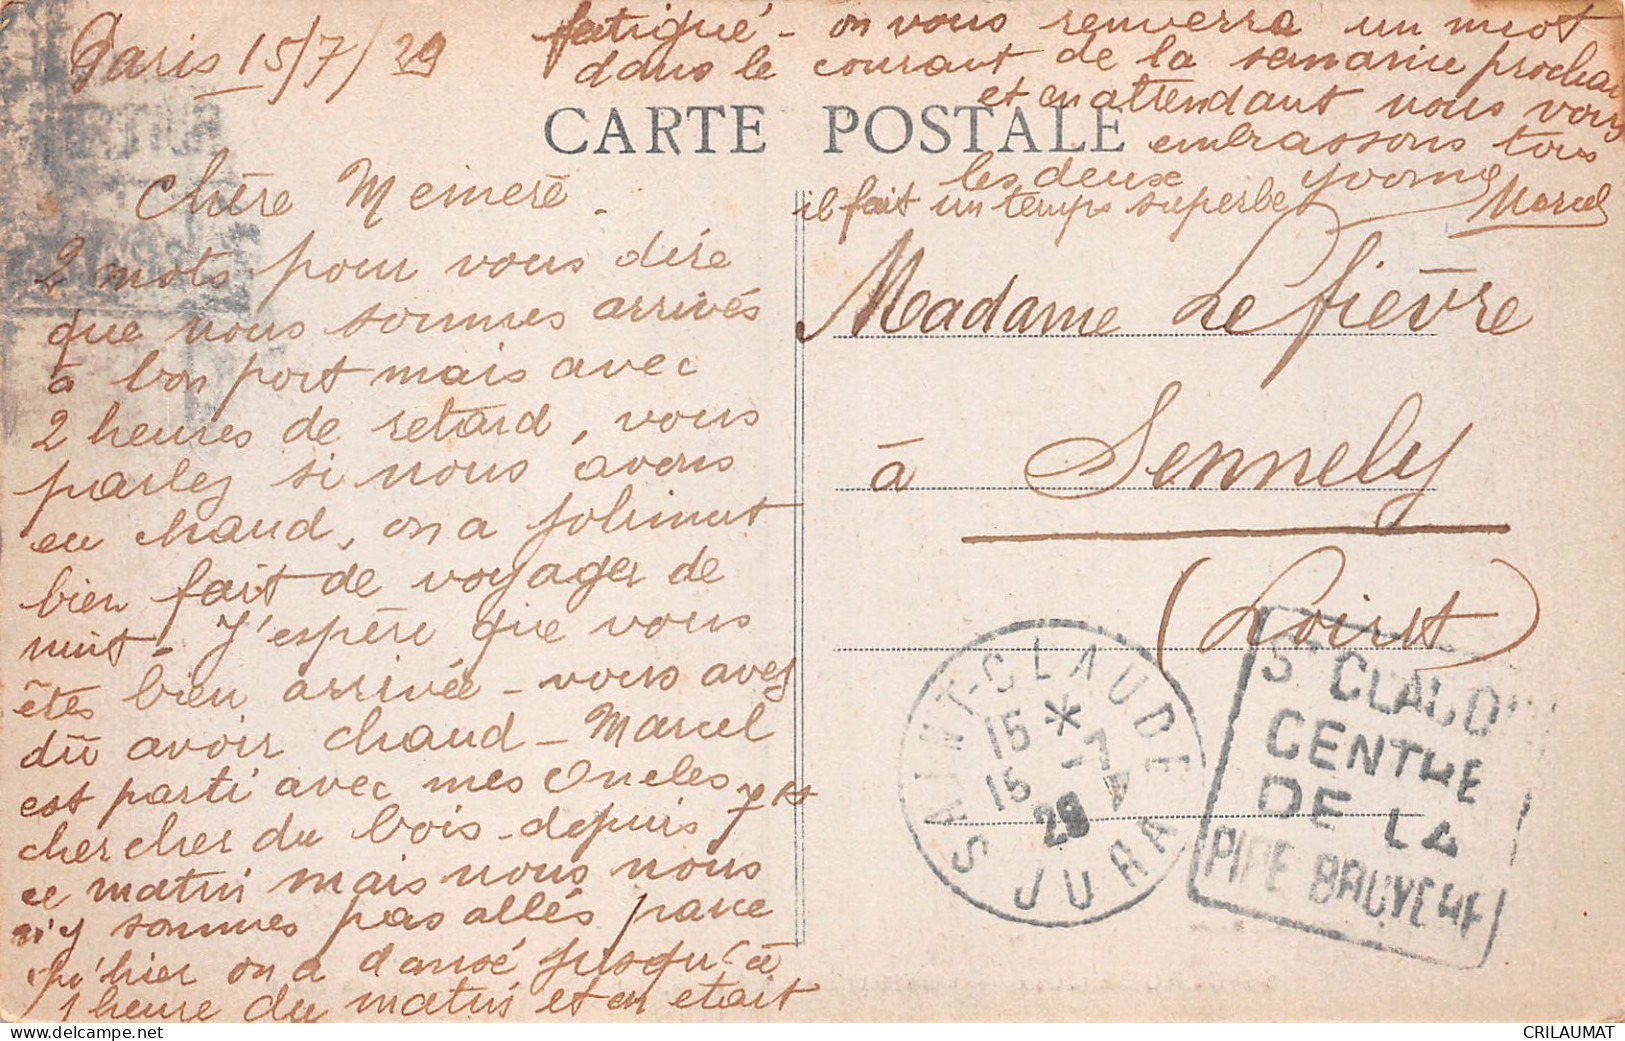 Paris 15/7/29
Chère Memere.
2 mots pour vous dire
que nous sommes arrivés
à bon port mais avec
2 heures de retard, vous
parlez si nous avons
eu chaud, on a joliment
bien fait de voyager de
nuit - J'espère que vous
êtes bien arrivée - vous avez
dû avoir chaud - Marcel
est parti avec mes Oncles
chercher du bois - depuis 7
ce matin mais nous nous
n'y sommes pas allés parce
qu'hier on a dansé jusqu'à
1 heure du matin et on etait
fatigué - on vous renverra un mot
dans le courant de la semaine prochai
et en attendant nous vous
embrassons tous
les deux Yvonne
Marcel
il fait un temps superbe
CARTE POSTALE
Madame Lefièvre
à Sennely
(Loiret)
SAINT-CLAUDE
15 * 15 -7 29
JURA
St CLAUDE
CENTRE
DE LA
PIPE BRUYERE
CRILAUMAT